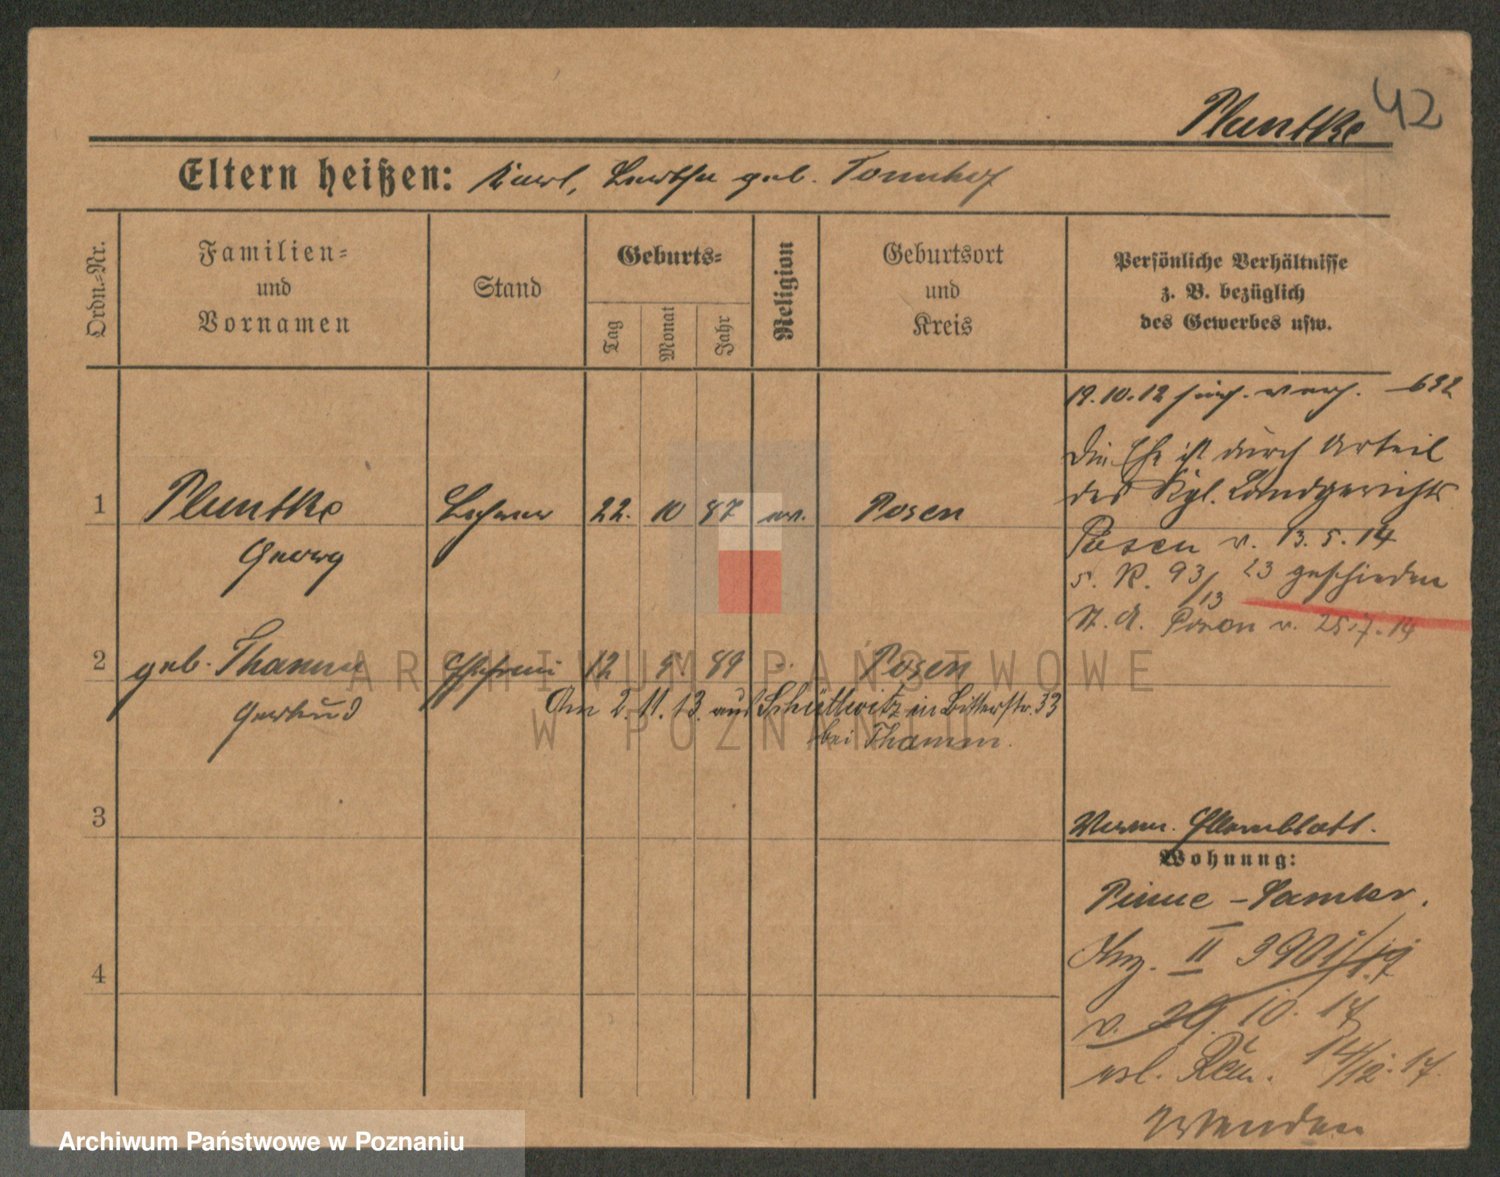 42
Pluntke
Eltern heißen: Karl, Bertha geb. Tonnhof
Ordn.-Nr.
Familien-
und
Vornamen
Stand
Geburts-
Tag
Monat
Jahr
Religion
Geburtsort
und
Kreis
Persönliche Verhältnisse
z. B. bezüglich
des Gewerbes usw.
19.10.12 verh. 632
Die Ehe ist durch Urteil
des Kgl. Landgerichts
Posen v. 13.5.14
5. R. 93/13 23 geschieden
St. A. Posen v. 25.7.14
1 Pluntke Lehrer 22. 10 87 ev. Posen
Georg
2 geb. Thamm Ehefrau 12 9. 89 Posen
Gertrud
Am 2.11.13 aus Schüttwitz in Bitterstr. 33
bei Thamm.
3
4
Verm. Elternblatt.
Wohnung:
Pinne - Samter.
Anz. II 3901/17
v. 29.10.17
14/12.17.
Wenden
ARCHIWUM PAŃSTWOWE
W POZNANIU
Archiwum Państwowe w Poznaniu